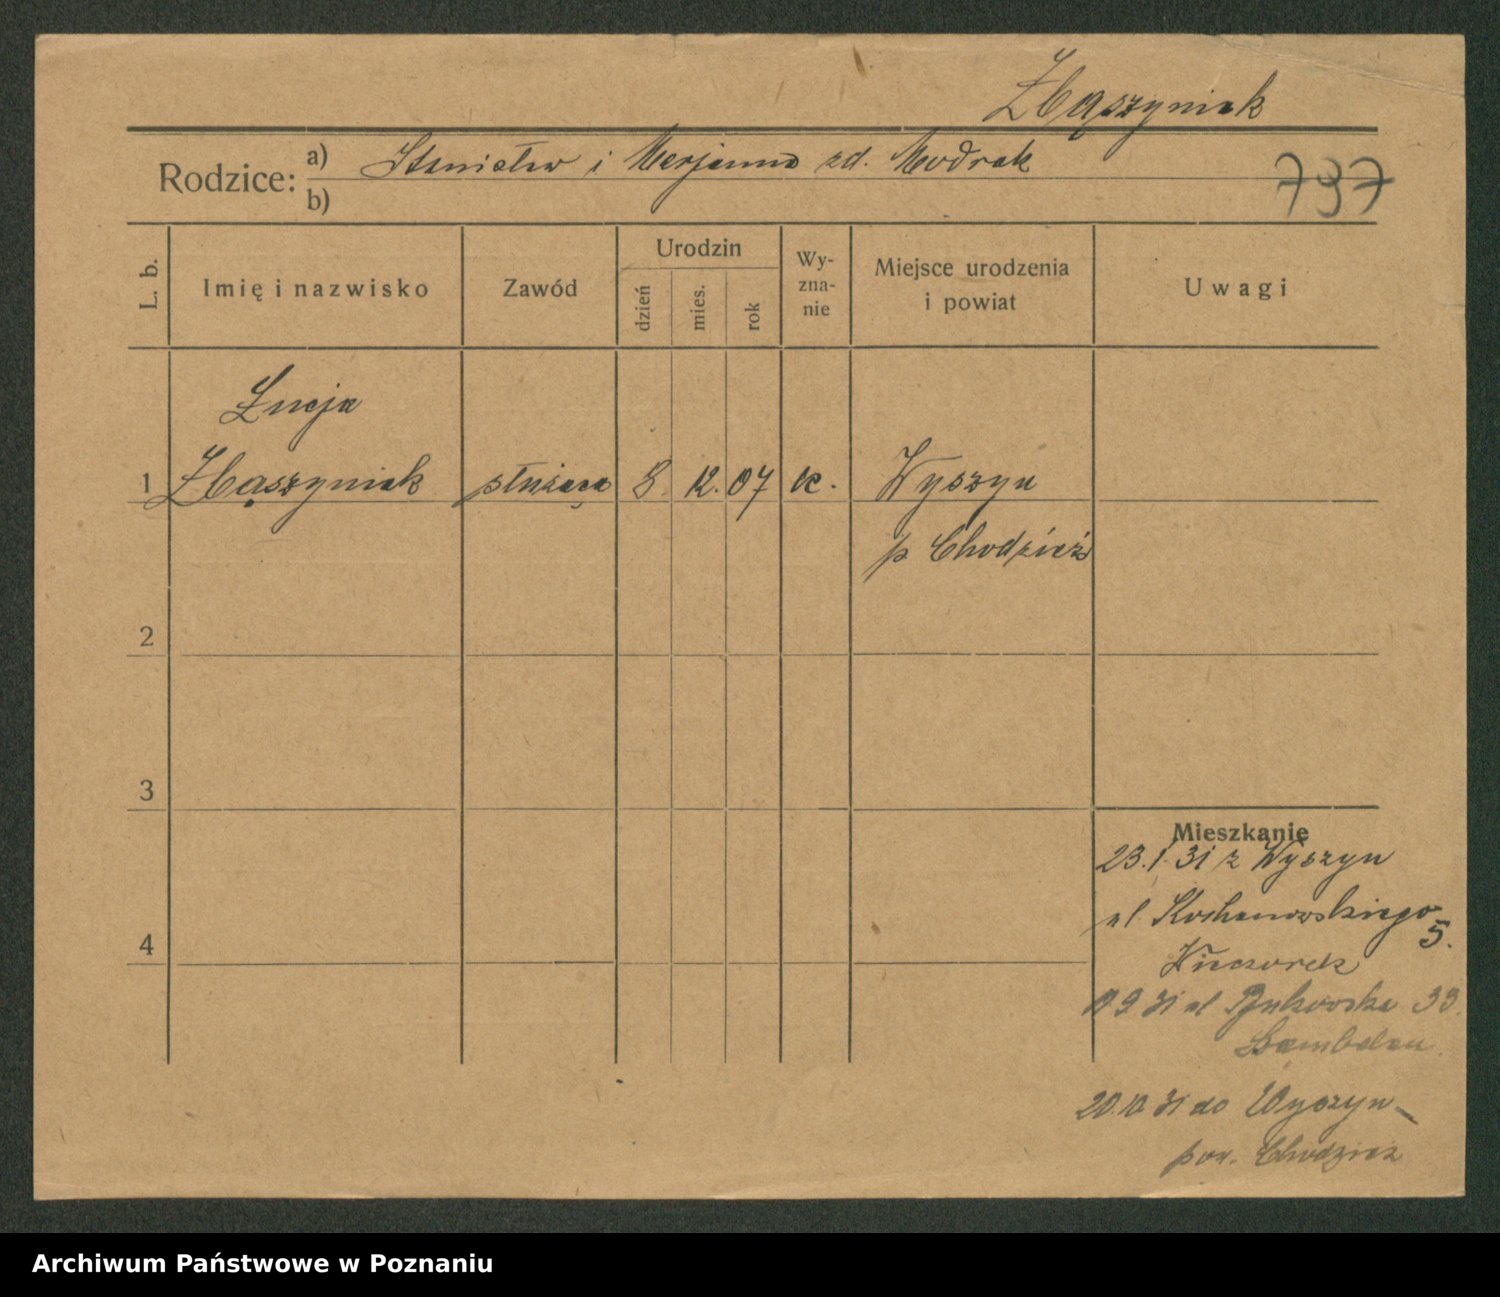 Zbąszyniak
Rodzice: a) Stanisław i Marjanna zd. Modrak
b)
797
L. b.
Imię i nazwisko
Zawód
Urodzin
dzień
mies.
rok
Wy-
zna-
nie
Miejsce urodzenia
i powiat
Uwagi
Łucja
1 Zbąszyniak służąca 8. 12. 07 k. Wyszyn
p Chodzież
2
3
4
Mieszkanie
23.1.31 z Wyszyn
ul Kochanowskiego
5.
Wieczorek
9 31 ul Bukowska 33.
20.10 31 do Wyszyn
pow. Chodzież
Archiwum Państwowe w Poznaniu